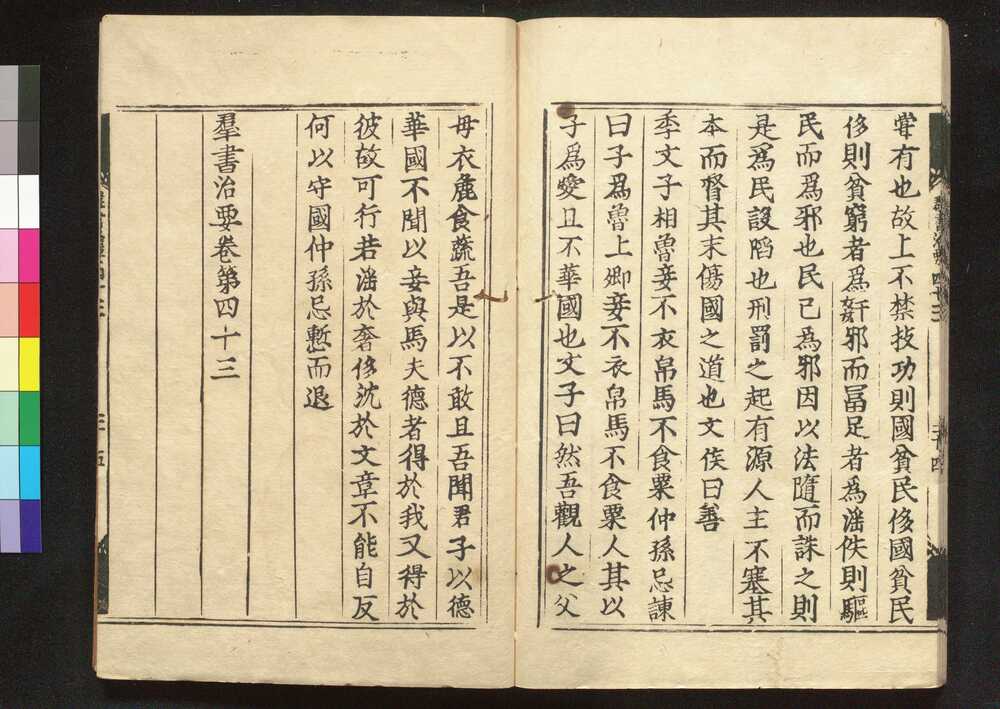 甞有也故上不禁技功則國貧民侈國貧民
侈則貧窮者為姧邪而冨足者為滛佚則驅
民而為邪也民已為邪因以法隨而誅之則
是為民設䧟也刑罰之起有源人主不塞其
本而督其末傷國之道也文侯曰善
季文子相魯妾不衣帛馬不食粟仲孫忌諌
曰子爲魯上卿妾不衣帛馬不食粟人其以
子爲愛且不華國也文子曰然吾觀人之父
母衣麁食蔬吾是以不敢且吾聞君子以德
華國不聞以妾與馬夫德者得於我又得於
彼故可行若滛於奢侈沈於文章不能自反
何以守國仲孫忌慙而退
羣書治要卷第四十三